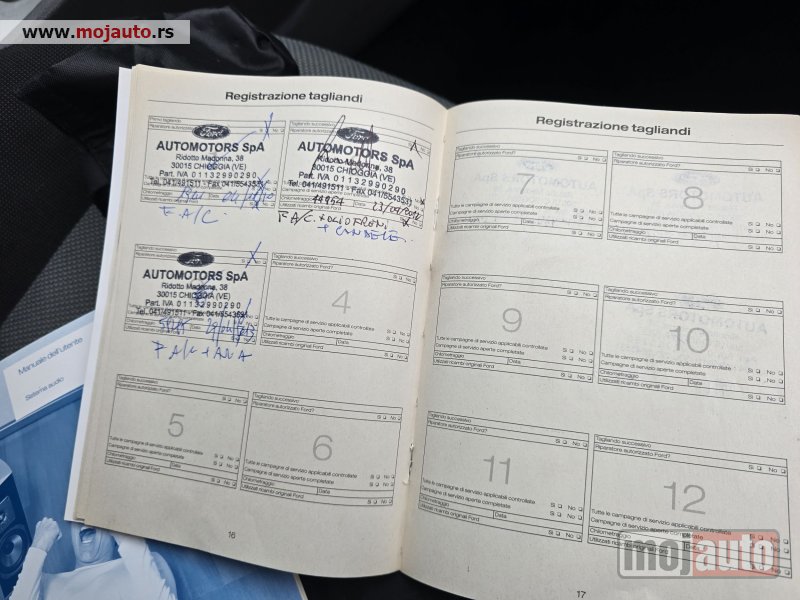 www.mojauto.rs
Registrazione tagliandi
Primo tagliando
Riparatore autorizzato Ford?
Sì No
Ford
AUTOMOTORS SpA
Ridotto Madonna, 38
30015 CHIOGGIA (VE)
Part. IVA 01132990290
Tel. 041/491511 - Fax 041/5543551
Chilometraggio
Utilizzati ricambi originali Ford
F.A/C.
Tagliando successivo
Riparatore autorizzato Ford?
Sì No
Ford
AUTOMOTORS SpA
Ridotto Madonna, 38
30015 CHIOGGIA (VE)
Part. IVA 01132990290
Tel. 041/491511 - Fax 041/5543551
23/04/2012
F.A/C. + OLIO FRENI
+ CANDELE
Tagliando successivo
Riparatore autorizzato Ford?
Sì No
AUTOMOTORS SpA
Ridotto Madonna, 38
30015 CHIOGGIA (VE)
Part. IVA 01132990290
Tel. 041/491511 - Fax 041/5543551
Chilometraggio
Utilizzati ricambi originali Ford
F.A/C + ARIA
Tagliando successivo
Riparatore autorizzato Ford?
Sì No
4
Tutte le campagne di servizio applicabili controllate
Campagne di servizio aperte completate
Sì No
Chilometraggio Data
Utilizzati ricambi originali Ford
Sì No
Tagliando successivo
Riparatore autorizzato Ford?
Sì No
5
Tutte le campagne di servizio applicabili controllate
Campagne di servizio aperte completate
Sì No
Chilometraggio Data
Utilizzati ricambi originali Ford
Sì No
Tagliando successivo
Riparatore autorizzato Ford?
Sì No
6
Tutte le campagne di servizio applicabili controllate
Campagne di servizio aperte completate
Sì No
Chilometraggio Data
Utilizzati ricambi originali Ford
Sì No
16
Registrazione tagliandi
Tagliando successivo
Riparatore autorizzato Ford?
Sì No
7
Tutte le campagne di servizio applicabili controllate
Campagne di servizio aperte completate
Sì No
Chilometraggio Data
Utilizzati ricambi originali Ford
Sì No
Tagliando successivo
Riparatore autorizzato Ford?
Sì No
8
Tutte le campagne di servizio applicabili controllate
Campagne di servizio aperte completate
Sì No
Chilometraggio Data
Utilizzati ricambi originali Ford
Sì No
Tagliando successivo
Riparatore autorizzato Ford?
Sì No
9
Tutte le campagne di servizio applicabili controllate
Campagne di servizio aperte completate
Sì No
Chilometraggio Data
Utilizzati ricambi originali Ford
Sì No
Tagliando successivo
Riparatore autorizzato Ford?
Sì No
10
Tutte le campagne di servizio applicabili controllate
Campagne di servizio aperte completate
Sì No
Chilometraggio Data
Utilizzati ricambi originali Ford
Sì No
Tagliando successivo
Riparatore autorizzato Ford?
Sì No
11
Tutte le campagne di servizio applicabili controllate
Campagne di servizio aperte completate
Sì No
Chilometraggio Data
Utilizzati ricambi originali Ford
Sì No
Tagliando successivo
Riparatore autorizzato Ford?
Sì No
12
Tutte le campagne di servizio applicabili controllate
Campagne di servizio aperte completate
Chilometraggio
Utilizzati ricambi originali Ford
17
Manuale dell'utente
Sistema audio
mojauto